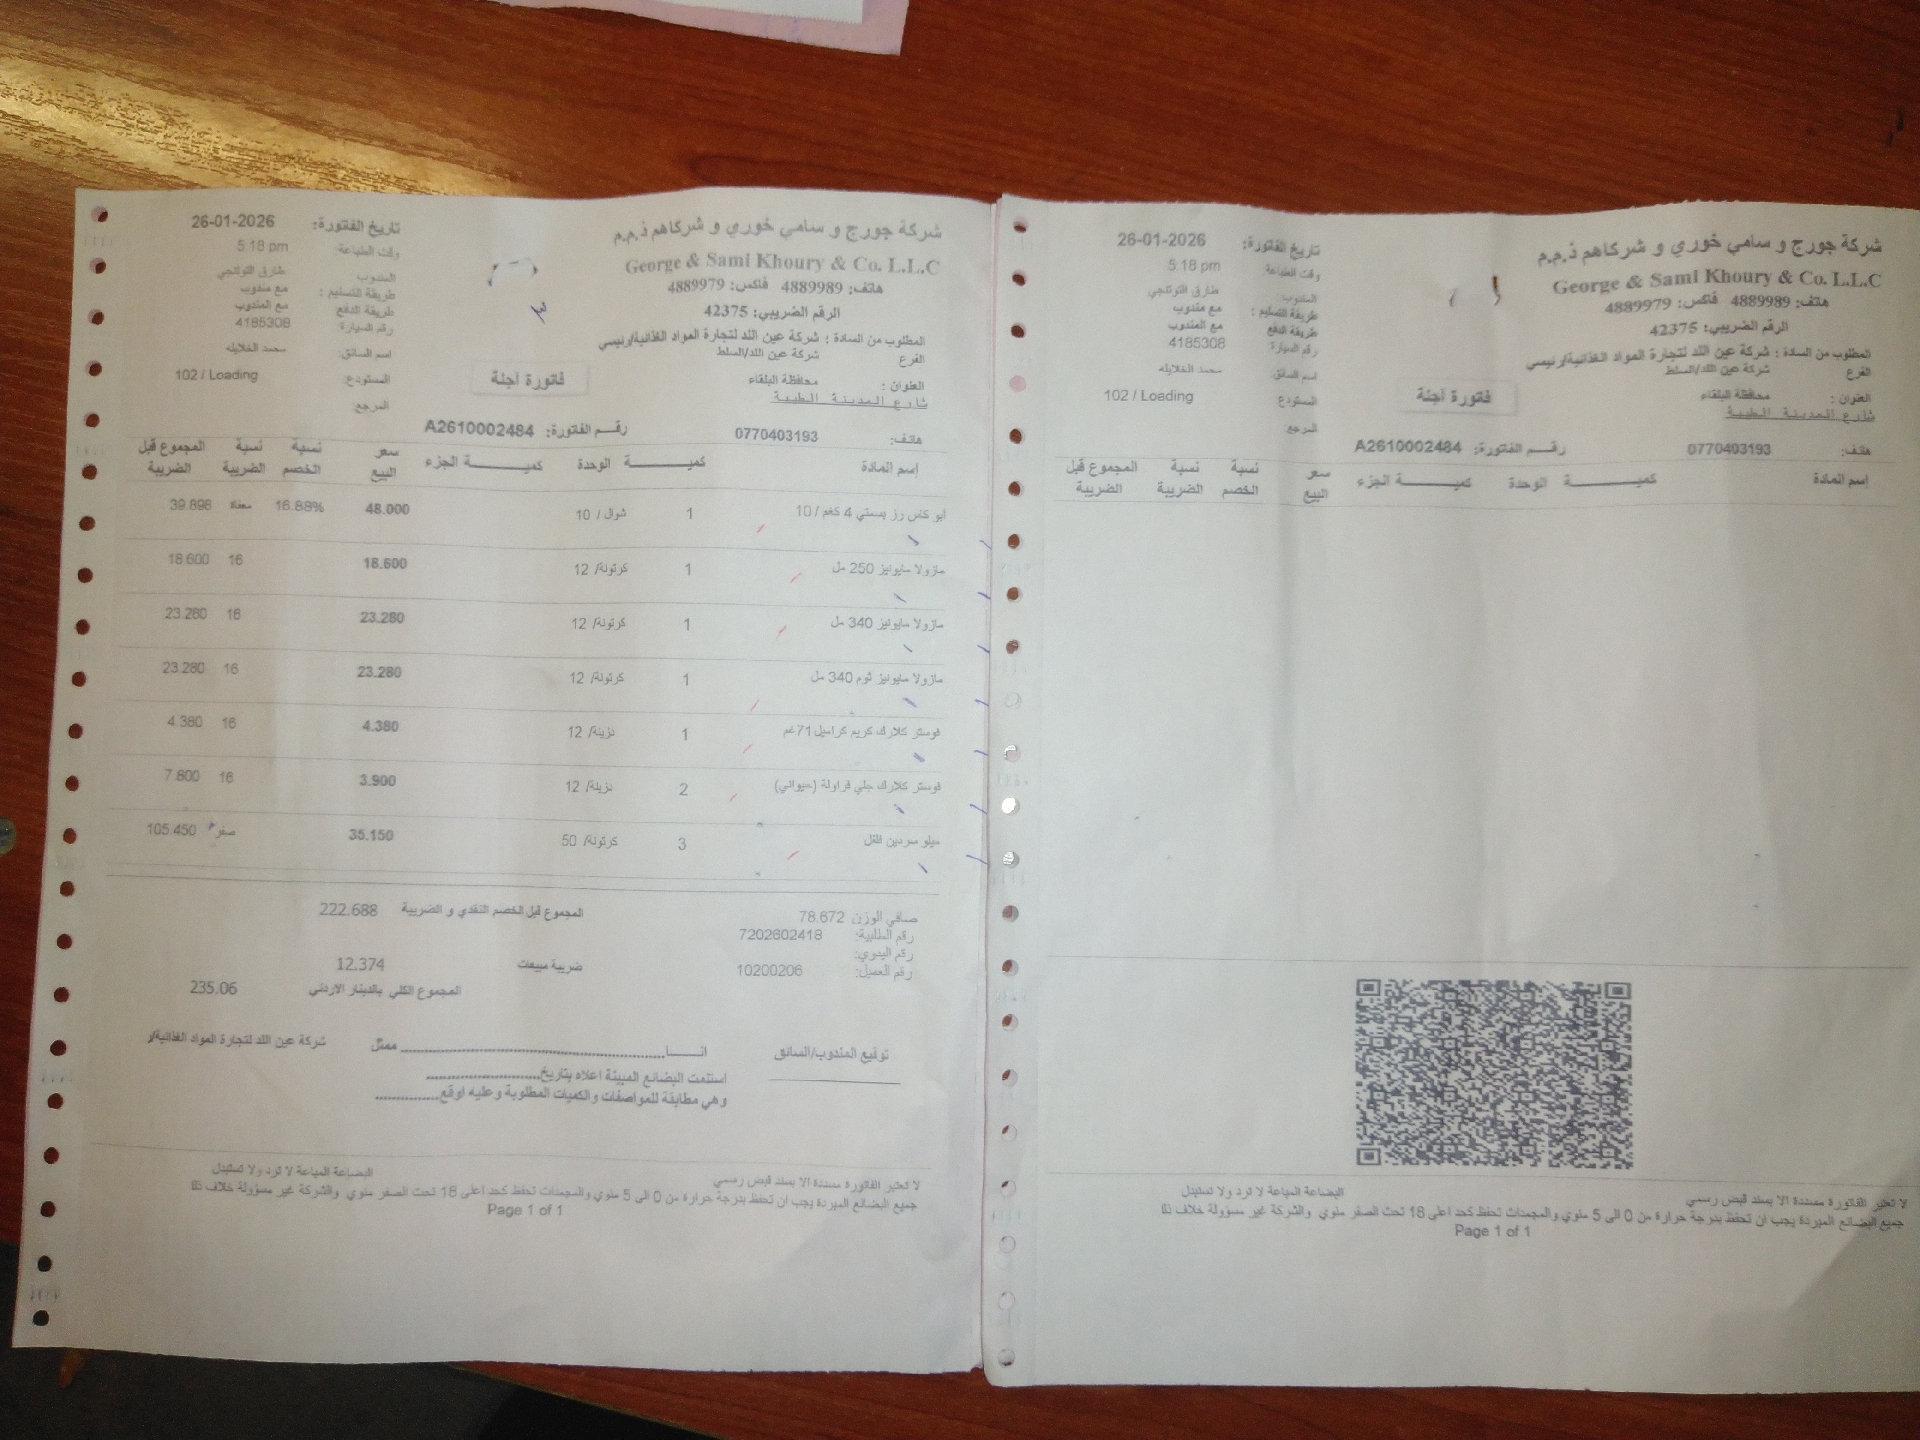 شركة جورج و سامي خوري و شركاهم ذ.م.م
George & Sami Khoury & Co. L.L.C
هاتف: 4889989 فاكس: 4889979
الرقم الضريبي: 42375
المطلوب من السادة : شركة عين اللد لتجارة المواد الغذائية/رئيسي
الفرع شركة عين اللد/السلط
العنوان : محافظة البلقاء
شارع المدينة الطبية
هاتف: 0770403193
تاريخ الفاتورة: 26-01-2026
وقت الطباعة: 5:18 pm
المندوب: طارق التوتنجي
طريقة التسليم : مع مندوب
طريقة الدفع مع المندوب
رقم السيارة: 4185308
اسم السائق: محمد الخلايله
المستودع: 102 / Loading
المرجع:
فاتورة آجلة
رقم الفاتورة: A2610002484
إسم المادة كمية الوحدة كمية الجزء سعر البيع نسبة الخصم نسبة الضريبة المجموع قبل الضريبة
ابو كاس رز بسمتي 4 كغم / 10 1 شوال / 10 48.000 16.88% معفاة 39.898
مازولا مايونيز 250 مل 1 كرتونة/ 12 18.600 16 18.600
مازولا مايونيز 340 مل 1 كرتونة/ 12 23.280 16 23.280
مازولا مايونيز ثوم 340 مل 1 كرتونة/ 12 23.280 16 23.280
فوستر كلارك كريم كراميل 71غم 1 دزينة/ 12 4.380 16 4.380
فوستر كلارك جلي فراولة (حيواني) 2 دزينة/ 12 3.900 16 7.800
ميلو سردين فلفل 3 كرتونة/ 50 35.150 صفر 105.450
صافي الوزن 78.672
رقم الطلبية: 7202602418
رقم اليدوي:
رقم العميل: 10200206
المجموع قبل الخصم النقدي و الضريبة 222.688
ضريبة مبيعات 12.374
المجموع الكلي بالدينار الاردني 235.06
توقيع المندوب/السائق
انا ممثل شركة عين اللد لتجارة المواد الغذائية/
استلمت البضائع المبينة اعلاه بتاريخ
وهي مطابقة للمواصفات والكميات المطلوبة وعليه اوقع
لا تعتبر الفاتورة مسددة الا بسند قبض رسمي البضاعة المباعة لا ترد ولا تستبدل
جميع البضائع المبردة يجب ان تحفظ بدرجة حرارة من 0 الى 5 مئوي والمجمدات تحفظ كحد اعلى 18 تحت الصفر مئوي والشركة غير مسؤولة خلاف ذلك
Page 1 of 1
شركة جورج و سامي خوري و شركاهم ذ.م.م
George & Sami Khoury & Co. L.L.C
هاتف: 4889989 فاكس: 4889979
الرقم الضريبي: 42375
المطلوب من السادة : شركة عين اللد لتجارة المواد الغذائية/رئيسي
الفرع شركة عين اللد/السلط
العنوان : محافظة البلقاء
شارع المدينة الطبية
هاتف: 0770403193
تاريخ الفاتورة: 26-01-2026
وقت الطباعة: 5:18 pm
المندوب: طارق التوتنجي
طريقة التسليم : مع مندوب
طريقة الدفع مع المندوب
رقم السيارة: 4185308
اسم السائق: محمد الخلايله
المستودع: 102 / Loading
المرجع:
فاتورة آجلة
رقم الفاتورة: A2610002484
إسم المادة كمية الوحدة كمية الجزء سعر البيع نسبة الخصم نسبة الضريبة المجموع قبل الضريبة
لا تعتبر الفاتورة مسددة الا بسند قبض رسمي البضاعة المباعة لا ترد ولا تستبدل
جميع البضائع المبردة يجب ان تحفظ بدرجة حرارة من 0 الى 5 مئوي والمجمدات تحفظ كحد اعلى 18 تحت الصفر مئوي والشركة غير مسؤولة خلاف ذلك
Page 1 of 1